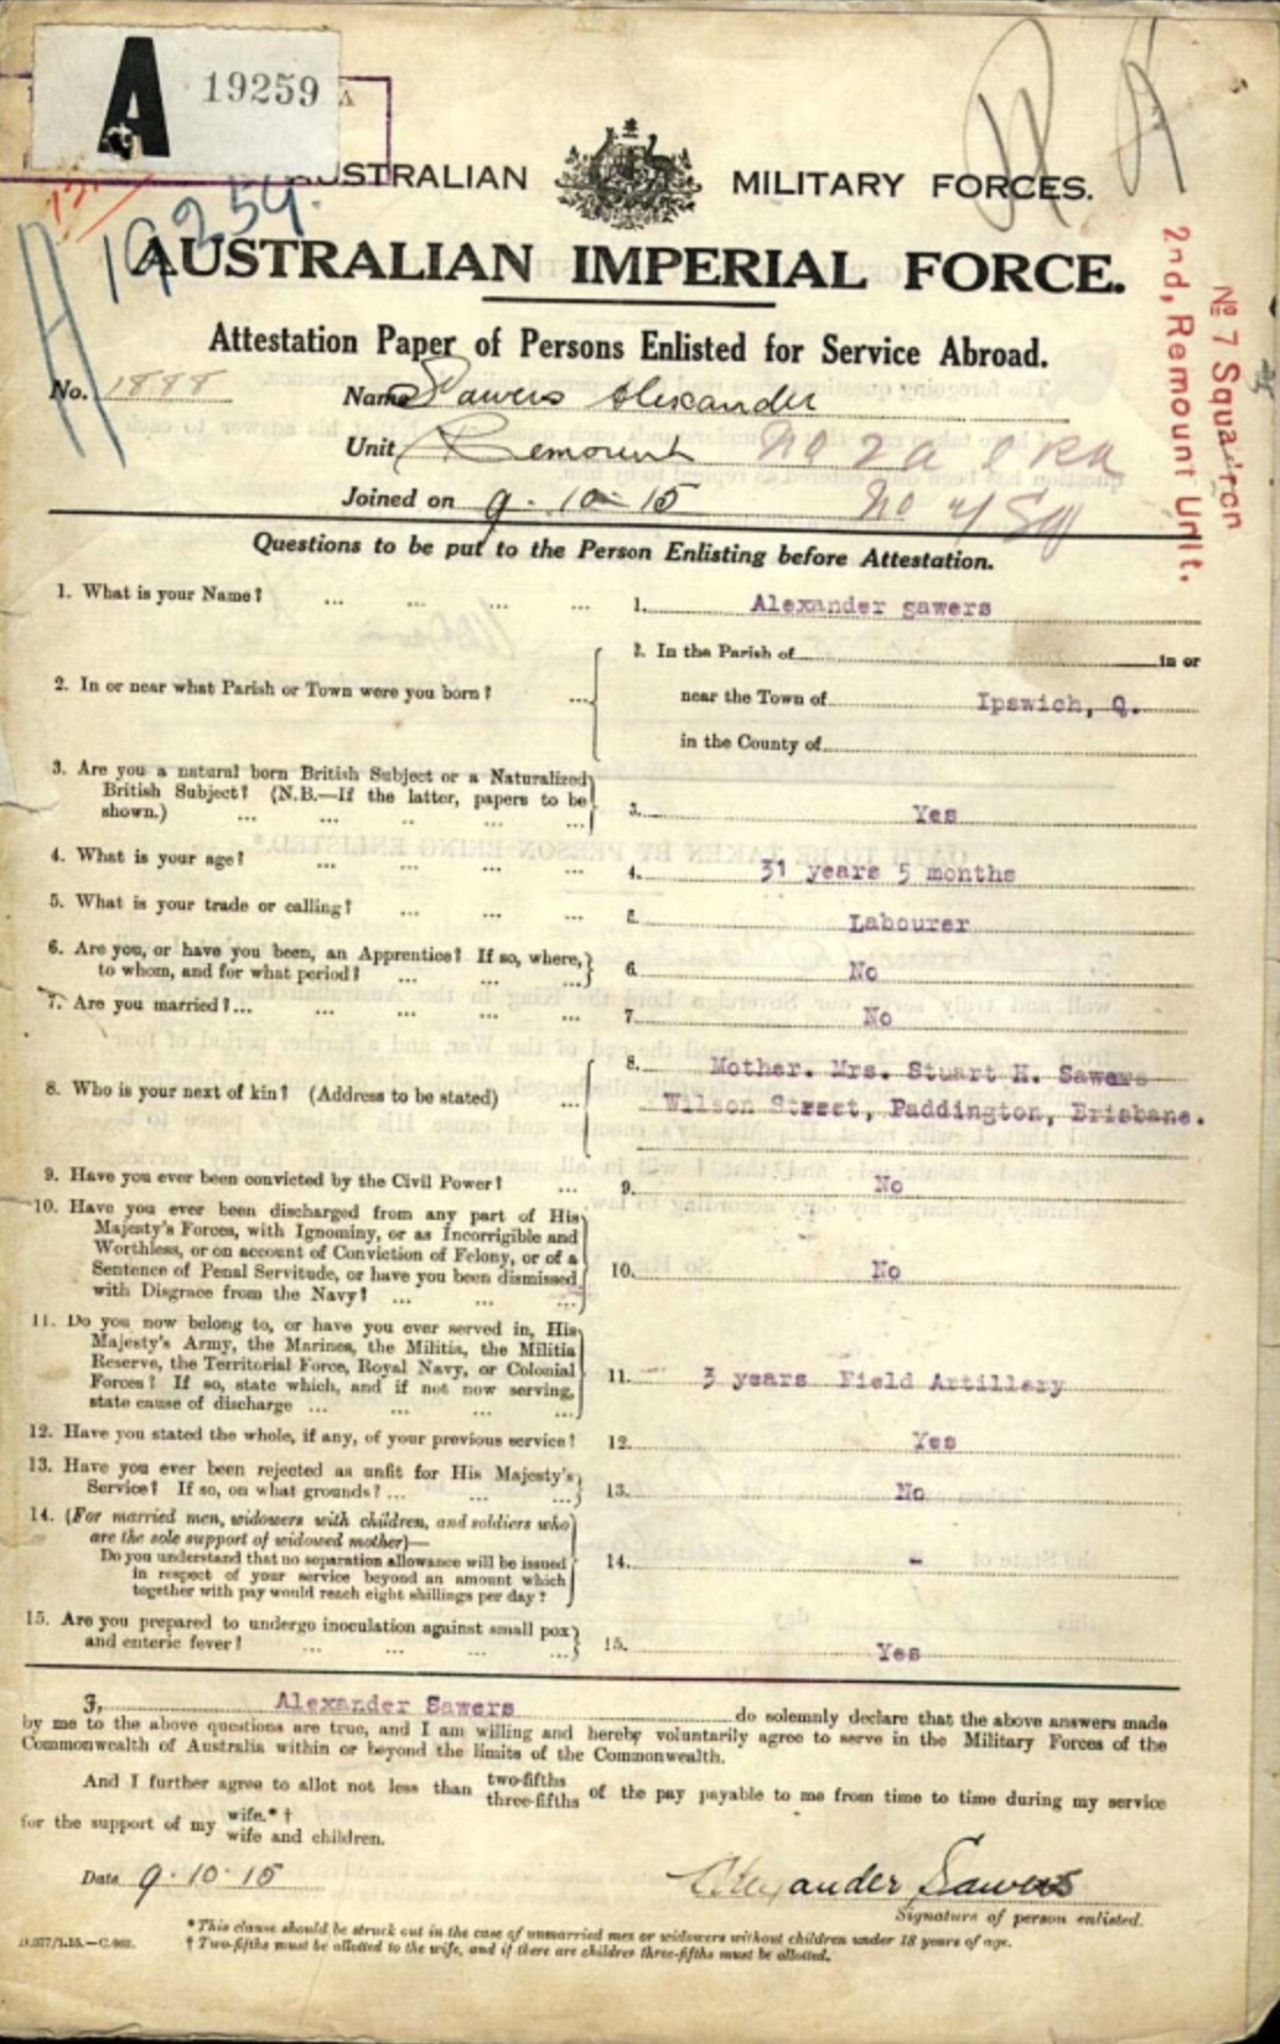 A 19259
AUSTRALIAN MILITARY FORCES.
19259.
AUSTRALIAN IMPERIAL FORCE.
Attestation Paper of Persons Enlisted for Service Abroad.
No. 1888 Name Sawers Alexander
Unit Remount
Joined on 9. 10 - 15
No 7 Squa'ron
2nd, Remount Unit.
Questions to be put to the Person Enlisting before Attestation.
1. What is your Name? ... ... ... ... 1. Alexander sawers
2. In or near what Parish or Town were you born? ... 2. In the Parish of in or
near the Town of Ipswich, Q.
in the County of
3. Are you a natural born British Subject or a Naturalized
British Subject? (N.B.—If the latter, papers to be
shown.) ... ... ... ... ... 3. Yes
4. What is your age? ... ... ... ... 4. 31 years 5 months
5. What is your trade or calling? ... ... ... 5. Labourer
6. Are you, or have you been, an Apprentice? If so, where,
to whom, and for what period? ... ... ... 6. No
7. Are you married?... ... ... ... ... 7. No
8. Who is your next of kin? (Address to be stated) ... 8. Mother. Mrs. Stuart H. Sawers
Wilson Street, Paddington, Brisbane.
9. Have you ever been convicted by the Civil Power? ... 9. No
10. Have you ever been discharged from any part of His
Majesty's Forces, with Ignominy, or as Incorrigible and
Worthless, or on account of Conviction of Felony, or of a
Sentence of Penal Servitude, or have you been dismissed
with Disgrace from the Navy? ... ... ... 10. No
11. Do you now belong to, or have you ever served in, His
Majesty's Army, the Marines, the Militia, the Militia
Reserve, the Territorial Force, Royal Navy, or Colonial
Forces? If so, state which, and if not now serving,
state cause of discharge ... ... ... ... 11. 3 years Field Artillery
12. Have you stated the whole, if any, of your previous service? 12. Yes
13. Have you ever been rejected as unfit for His Majesty's
Service? If so, on what grounds? ... ... ... 13. No
14. (For married men, widowers with children, and soldiers who
are the sole support of widowed mother)—
Do you understand that no separation allowance will be issued
in respect of your service beyond an amount which
together with pay would reach eight shillings per day? 14. -
15. Are you prepared to undergo inoculation against small pox
and enteric fever? ... ... ... ... 15. Yes
I, Alexander Sawers do solemnly declare that the above answers made
by me to the above questions are true, and I am willing and hereby voluntarily agree to serve in the Military Forces of the
Commonwealth of Australia within or beyond the limits of the Commonwealth.
And I further agree to allot not less than two-fifths three-fifths of the pay payable to me from time to time during my service
for the support of my wife.* † wife and children.
Date 9.10.15 Alexander Sawers
Signature of person enlisted.
* This clause should be struck out in the case of unmarried men or widowers without children under 18 years of age.
† Two-fifths must be allotted to the wife, and if there are children three-fifths must be allotted.